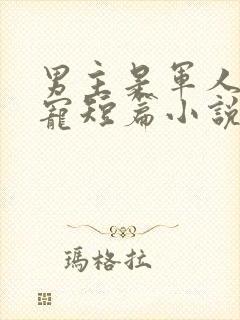 男主是軍人
寵短篇小說
瑪格拉